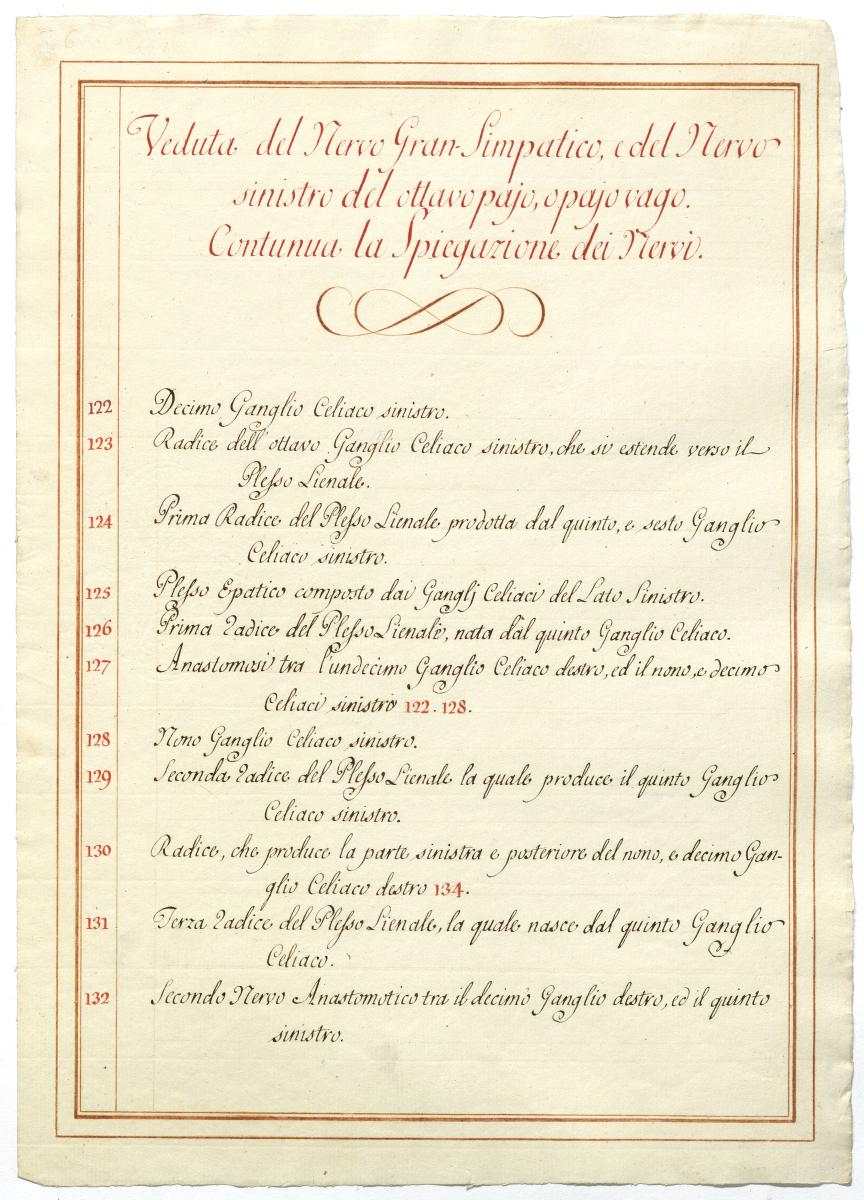 6
Veduta del Nervo Gran-Simpatico, e del Nervo
sinistro del ottavo pajo, o pajo vago.
Contunua la Spiegazione dei Nervi.
122 Decimo Ganglio Celiaco sinistro.
123 Radice dell'ottavo Ganglio Celiaco sinistro, che si estende verso il
Plesso Lienale.
124 Prima Radice del Plesso Lienale prodotta dal quinto, e sesto Ganglio
Celiaco sinistro.
125 Plesso Epatico composto dai Ganglj Celiaci del Lato Sinistro.
126 Prima Radice del Plesso Lienale, nata dal quinto Ganglio Celiaco.
127 Anastomosi tra l'undecimo Ganglio Celiaco destro, ed il nono, e decimo
Celiaci sinistro 122. 128.
128 Nono Ganglio Celiaco sinistro.
129 Seconda Radice del Plesso Lienale la quale produce il quinto Ganglio
Celiaco sinistro.
130 Radice, che produce la parte sinistra e posteriore del nono, e decimo Gan-
glio Celiaco destro 134.
131 Terza Radice del Plesso Lienale, la quale nasce dal quinto Ganglio
Celiaco.
132 Secondo Nervo Anastomotico tra il decimo Ganglio destro, ed il quinto
sinistro.